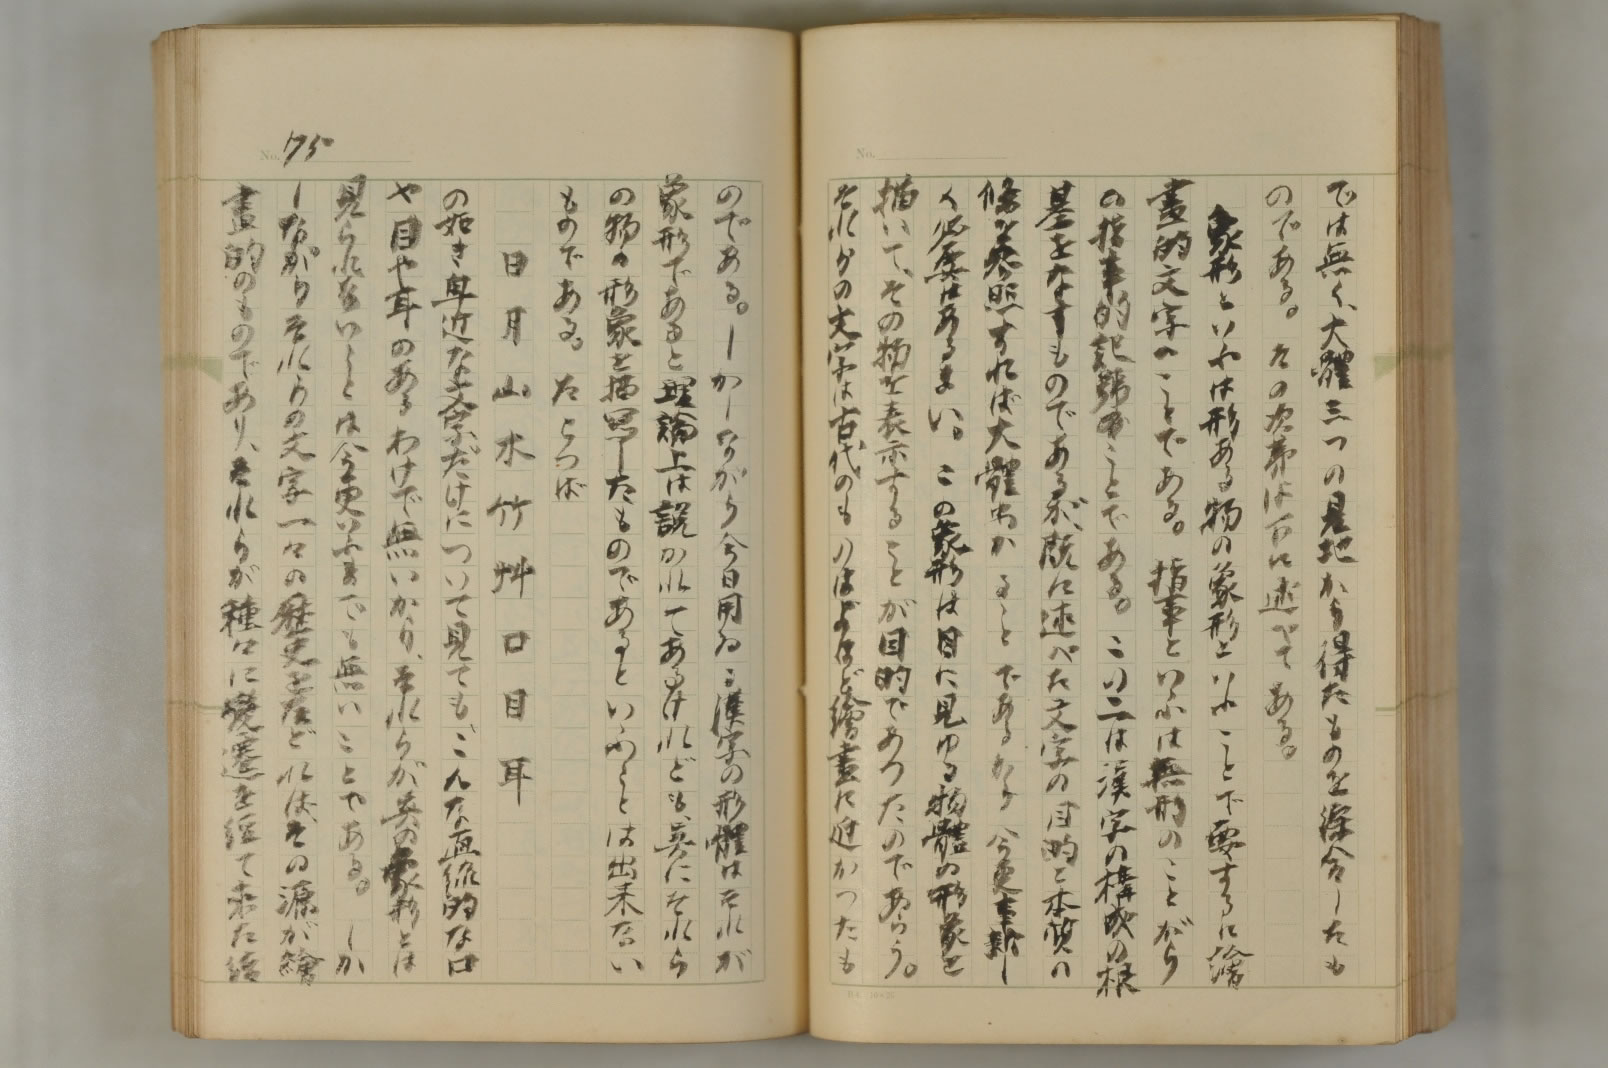 では無く、大體三つの見地から得たものを綜合したも
のである。その次第は下に述べてある。
象形といふは形ある物の象形といふことで要するに繪
畫的文字のことである。指事といふは無形のことがら
の指事的記號のことである。この二は漢字の構成の根
基をなすものであるが、既に述べた文字の目的と本質の
條を参照すれば大體わかることであるから今更事新し
く必要はあるまい。この象形は目に見ゆる物體の形象を
描いて、その物を表示することが目的であつたのであらう。
それらの文字は古代のものほどよほど繪畫に近かつたも
No.
No. 175
のである。しかしながら今日用ゐる漢字の形體はそれが
象形であると理論上は説かれてあるけれども、真にそれら
の物の形象を描冩したものであるといふことは出来ない
ものである。たとへば
日月山水竹艸口目耳
の如き卑近な文字だけについて見ても、こんな直線的な口
や目や耳のあるわけで無いから、それらが真の象形とは
見られないことは今更いふまでも無いことである。しか
しながらそれらの文字一々の歴史をたどればその源が繪
畫的のものであり、それらが種々に變遷を経て来た結